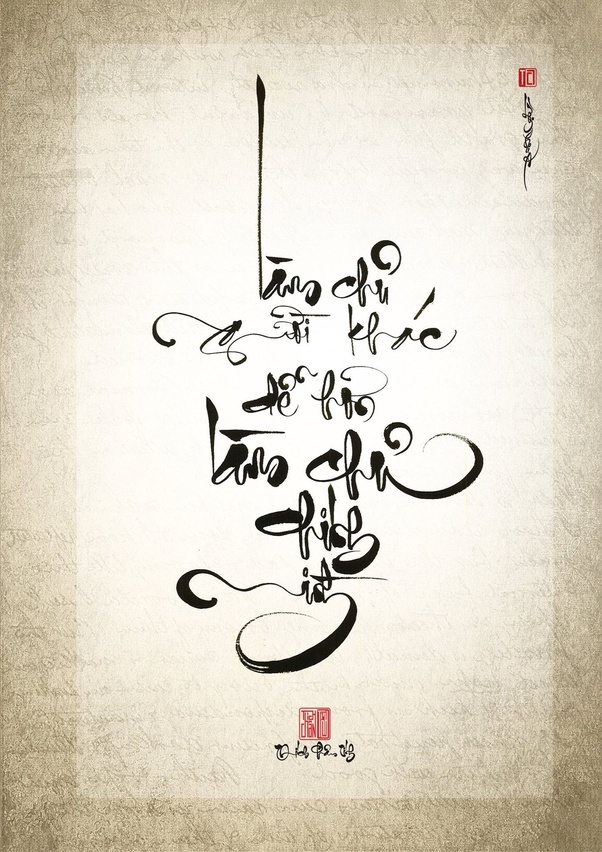 Làm chủ
người khác
dễ hơn
Làm chủ
chính
mình